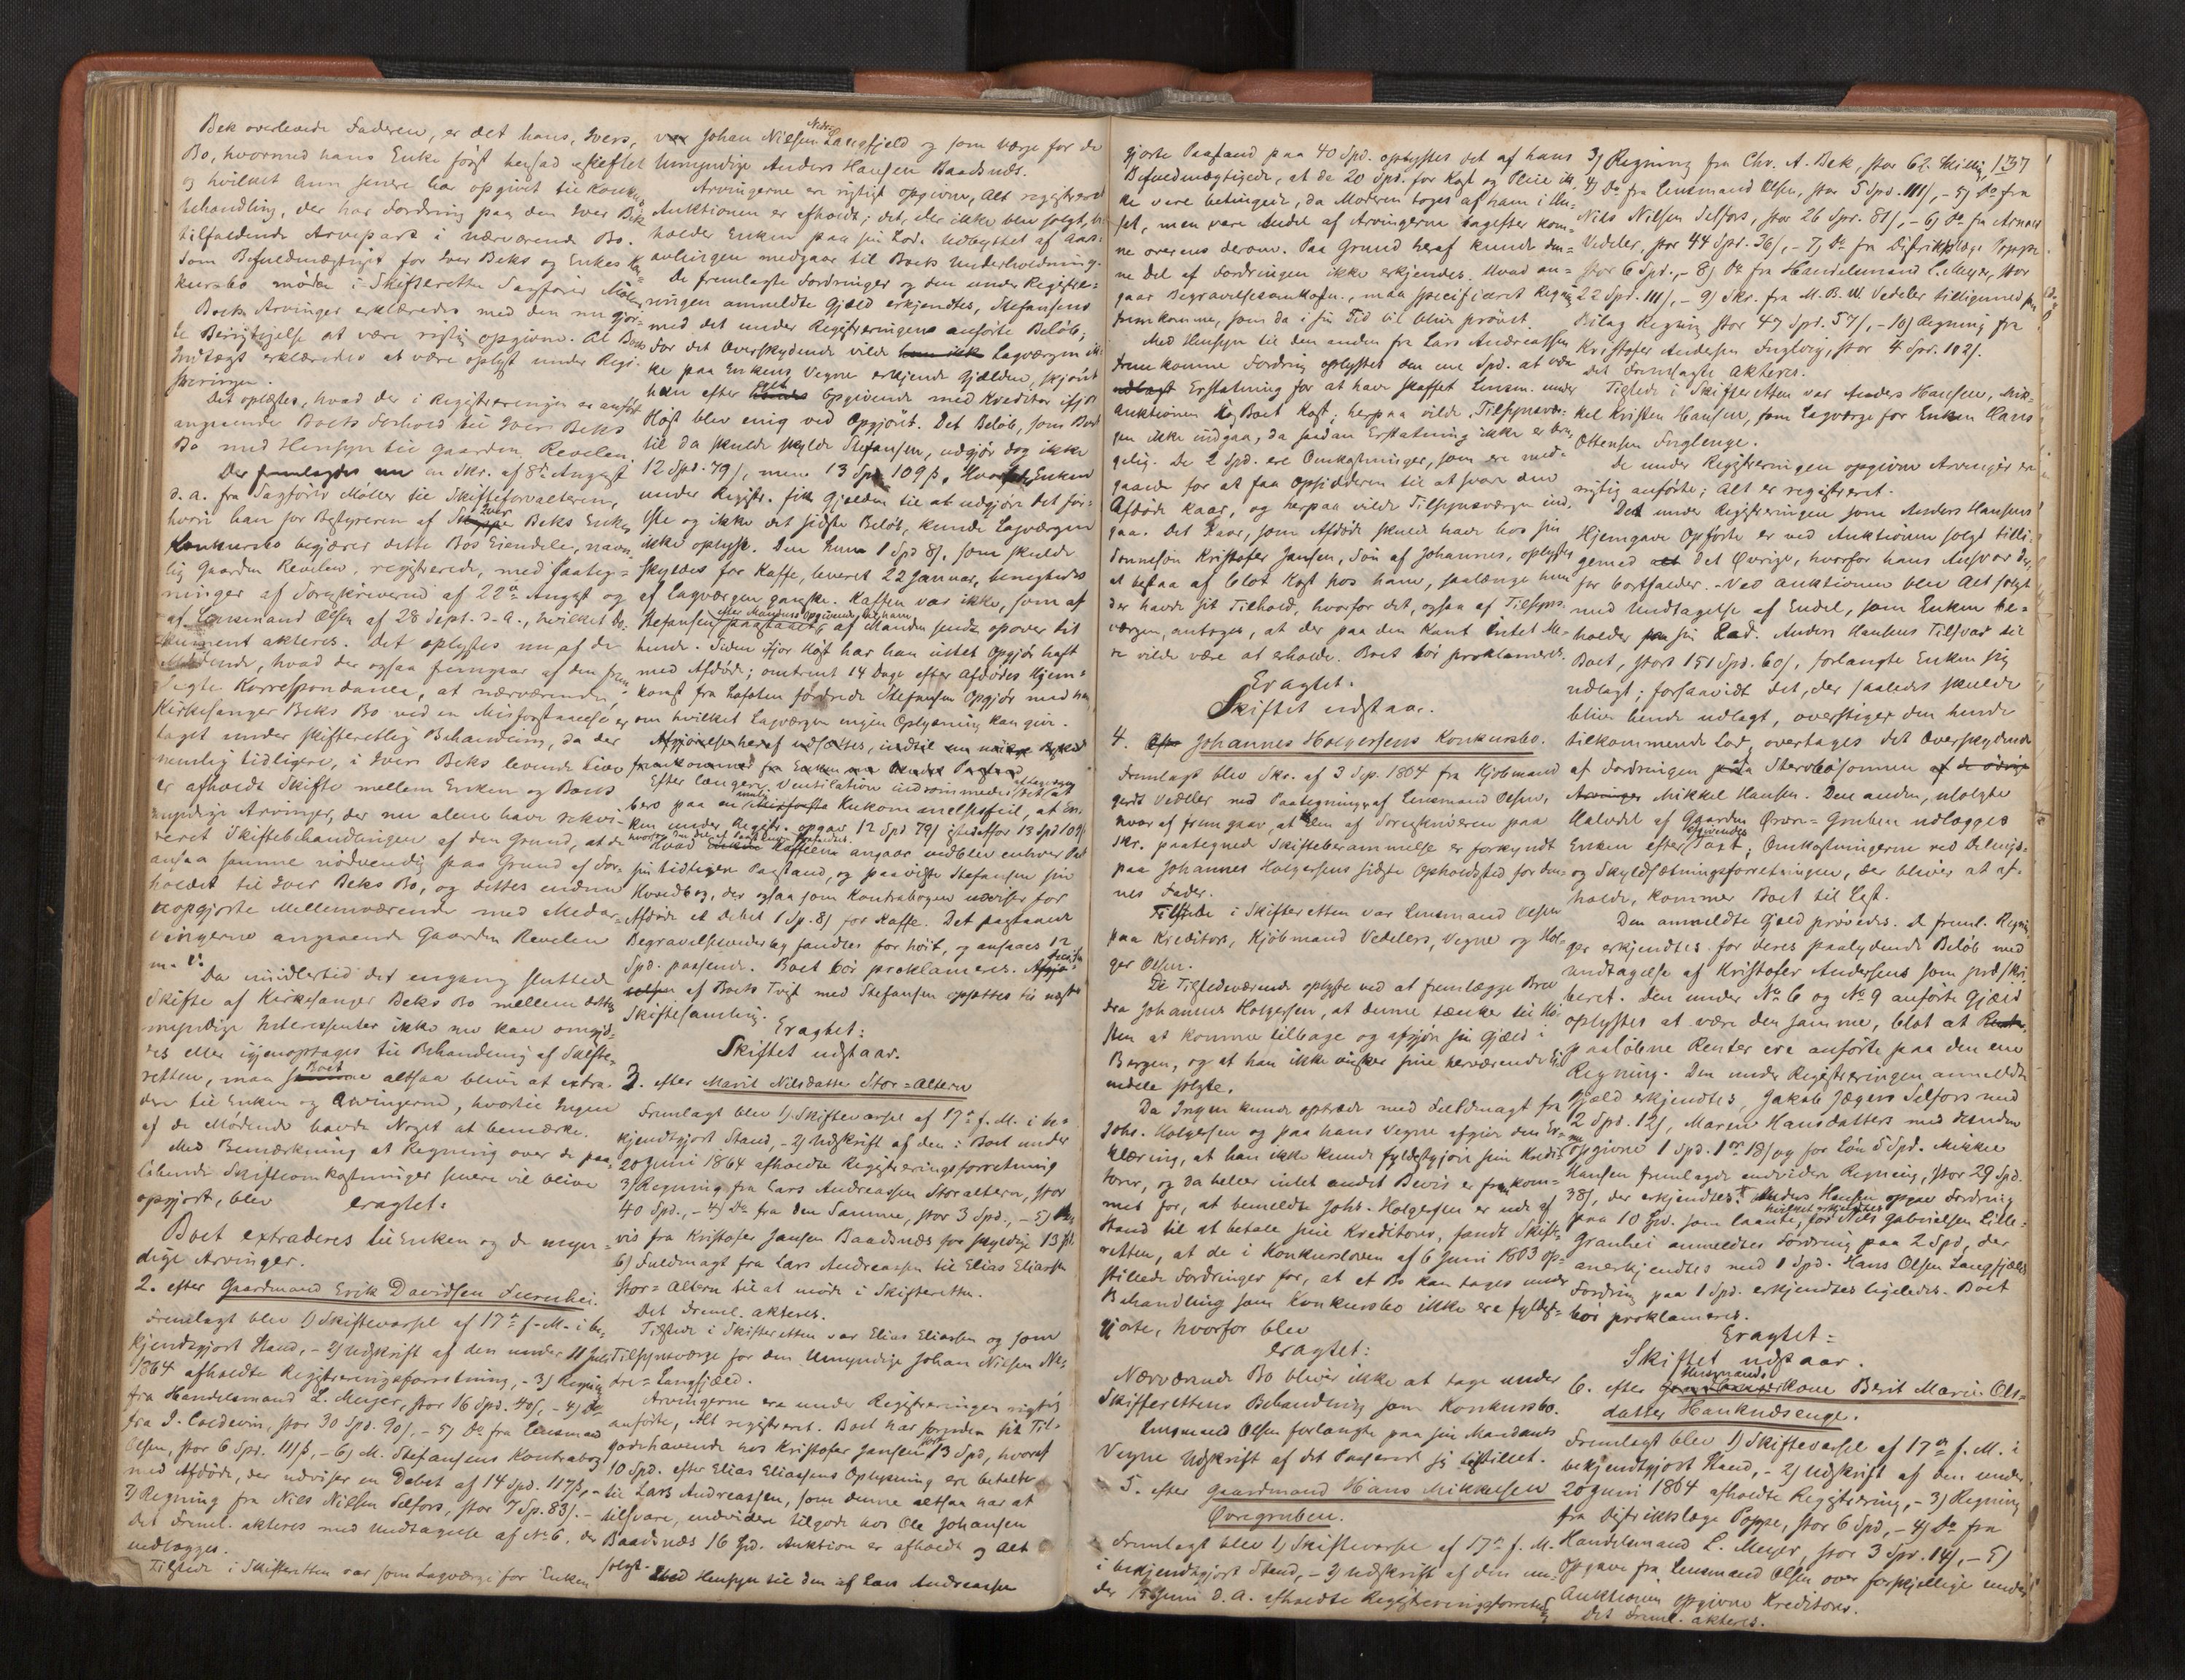 Bek overlevede Faderen, er det hans, Ivers,
Bo, hvormed hans Enke først hensad uskiftet
og hvilket hun senere har opgivet til Konkurs
behandling, der har Fordring paa den Iver Bek
tilfaldende Arvepart i nærværende Bo.
Som Befuldmægtiget for Iver Beks og Enkes Kon=
kursbo møder i Skifteretten Sagfører Møller
Boets Arvinger erklæredes med den nu gjor=
te Berigtigelse at være rigtig opgivne. Al Boets
Indtægt erklæredes at være oplyst under Regi=
streringen.
Det oplæstes, hvad der i Registreringen er anført
angaaende Boets Forhold til Iver Beks
Bo med Hensyn til Gaarden Revelen.
Der fremlagdes nu en Skr. af 8de August
d. A. fra Sagfører Møller til Skifteforvalteren,
hvori han som Bestyreren af Iver Beks Enkes
Konkursbo begjærer dette Bos Eiendele, navn=
lig Gaarden Revelen, registrerede, med Paateg=
ninger af Sorenskriveren af 22de August og
af Lensmand Olsen af 28 Sept. d. A., hvilket Do=
kument akteres. Det oplystes nu af de
Mødende, hvad der ogsaa fremgaar af den frem
lagte Korrespondance, at nærværende
Kirkesanger Beks Bo ved en Misforstaaelse er
taget under skifteretlig Behandling, da der
nemlig tidligere, i Iver Beks levende Live
er afholdt Skifte mellem Enken og Boets
myndige Arvinger, der nu alene have rekvi=
reret Skiftebehandlingen af den Grund, at de
ansaa samme nødvendig paa Grund af For=
holdet til Iver Beks Bo, og dettes endnu
uopgjorte Mellemværende med Medar=
vingerne angaaende Gaarden Revelen
m. v.
Da imidlertid det engang sluttede
Skifte af Kirkesanger Beks Bo mellem dettes
myndige Interessenter ikke nu kan omgjø=
res eller igjenoptages til Behandling af Skifte=
retten, maa Boet altsaa blive at extra=
dere til Enken og Arvingerne, hvortil Ingen
af de Mødende havde Noget at bemærke.
Med Bemærkning at Regning over de paa=
løbende Skifteomkostninger senere vil blive
opgjort, blev eragtet:
Boet extraderes til Enken og de myn=
dige Arvinger.
2. efter Gaardmand Erik Davidsen Furuhei.
Fremlagt blev 1) Skiftevarsel af 17de f. M. i be=
kjendtgjort Stand, - 2) Udskrift af den under 11 Juli
1864 afholdte Registreringsforretning, - 3) Regning
fra Handelsmand L. Meyer, stor 16 Spd. 40 s, - 4) Do
fra J. Coldevin, stor 30 Spd. 90 s, - 5) Do fra Lensmand
Olsen, stor 6 Spd. 111 s, - 6) M. Stefansens Kontrabog
med Afdøde, der udviser en Debet af 14 Spd. 117 s, -
7) Regning fra Nils Nilsen Selfors, stor 7 Sp. 83 s. -
Det Freml. akteres med Undtagelse af No 6, der
vedlægges.
Tilstede i Skifteretten var som Lagværge for Enken
var Johan Nielsen Nedre Langfjeld og som Værge for de
Umyndige Anders Hansen Baadsnæs.
Arvingerne ere rigtigt opgivne, Alt registreret
Auktionen er afholdt; det, der ikke blev solgt, be=
holder Enken paa sin Lod. Udbyttet af Aars=
avlingen medgaar til Boets Underholdning.
De fremlagte Fordringer og den under Registre=
ringen anmeldte Gjæld erkjendtes, Stefansens
med det under Registreringen anførte Beløb;
for det Overskydende vilde Lagværgen ik=
ke paa Enkens Vegne erkjende Gjælden, skjønt
han efter Opgivende med Kreditor ifjor
Høst blev enig ved Opgjørt. Det Beløb, som Boet
til da skulde skylde Stefansen, udgjør dog ikke
12 Spd. 79 s, men 13 Spd 109 s. Hvorfor Enken
under Registr. fik Gjælden til at udgjøre det før=
ste og ikke det sidste Beløb, kunde Lagværgen
ikke oplyse. Den Sum 1 Spd 8 s, som skulde
skyldes for Kaffe, leveret 22 Januar, benegtedes
af Lagværgen ganske. Kaffen var ikke, som af
Stefansen paastaaet, af Manden sendt opover til
hende. Siden ifjor Høst har han intet Opgjør haft
med Afdøde; omtrent 14 Dage efter Afdødes Hjem=
komst fra Lofoten fordrede Stefansen Opgjør med ham,
om hvilket Lagværgen ingen Oplysning kan give.
Efter længere Ventilation indrømmedes det at
bero paa en Erindringsfeil, at En=
ken under Registr. opgav 12 Spd 79 s istedetfor 13 Spd 109 s
Hvad Kaffeen angaar vedblev enhver Part
sin tidligere Paastand, og paaviste Stefansen sin
Hovedbog, der ogsaa som Kontrabogen udviser for
Afdøde et Debet 1 Sp. 8 s for Kaffe. Det paastaaede
Begravelsesvederlag fandtes for høit, og ansaaes 12
Spd. passende. Boet bør proklameres. Afgjø=
relsen af Boets Tvist med Stefansen opsættes til næste
Skiftesamling.
Eragtet:
Skiftet udstaar.
3. efter Marit Nilsdatter Stor=Altern
Fremlagt blev 1) Skiftevarsel af 17de f. M. i be=
kjendtgjort Stand, - 2) Udskrift af den i Boet under
20 Juni 1864 afholdte Registreringsforretning
3) Regning fra Lars Andreassen Storaltern, stor
40 Spd., - 4) Do fra den Samme, stor 3 Spd., - 5) Be=
vis fra Kristofer Jansen Baadsnæs for skyldige 13 Spd.
6) Fuldmagt fra Lars Andreassen til Elias Eliassen
Stor=Altern til at møde i Skifteretten.
Det Freml. akteres.
Tilstede i Skifteretten var Elias Eliassen og som
Tilsynsværge for den Umyndige Johan Nielsen Ne=
dre=Langfjæld.
Arvingerne ere under Registreringen rigtig
anførte, Alt registreret. Boet har foruden sit Til=
godehavende hos Kristofer Jansen stort 13 Spd, hvoraf
10 Spd. efter Elias Eliassens Oplysning ere betalte
til Lars Andreassen, som denne altsaa har at
tilsvare, endvidere tilgode hos Ole Johansen
Baadsnæs 16 Spd. Auktion er afholdt og Alt
solgt.
Med Hensyn til den af Lars Andreassen
gjorte Paastand paa 40 Spd. oplystes det af hans
Befuldmægtigede, at de 20 Spd. for Kost og Pleie ik=
ke vare betingede, da Moderen toges af ham i Hu=
set, men vare Endel af Arvingerne bagefter kom=
ne overens derom. Paa Grund heraf kunde den=
ne Del af Fordringen ikke erkjendes. Hvad an=
gaar Begravelsesomkostn., maa specificeret Regning
fremkomme, som da i sin Tid vil blive prøvet.
Med Hensyn til den anden fra Lars Andreassen
fremkomne Fordring oplystes den ene Spd. at være
Erstatning for at have skaffet Lensm. under
Auktionen i Boet Kost; herpaa vilde Tilsynsvær=
gen ikke indgaa, da saadan Erstatning ikke er bru=
gelig. De 2 Spd. ere Omkostninger, som ere med=
gaaede for at faa Opsidderen til at svare den
Afdøde Kaar, og herpaa vilde Tilsynsværgen ind=
gaa. Det Kaar, som Afdøde skulde have hos sin
Sønnesøn Kristofer Jansen, Søn af Johannes, oplystes
at bestaa af blot Kost hos ham, saalænge hun
der havde sit Tilhold, hvorfor det, ogsaa af Tilsyns=
værgen, antoges, at der paa den Kant Intet Me=
re vilde være at erholde. Boet bør proklameres.
Eragtet:
Skiftet udstaar.
4. Johannes Holgersens Konkursbo.
Fremlagt blev Skr. af 3 Sep. 1864 fra Kjøbmand
Gerdt Vedeler med Paategning af Lensmand Olsen,
hvoraf fremgaar, at den af Sorenskriveren paa
Skr. paategnede Skifteberammelse er forkyndt
paa Johannes Holgersens sidste Opholdssted for den=
nes Fader.
Tilstede i Skifteretten var Lensmand Olsen
paa Kreditors, Kjøbmand Vedelers, Vegne og Hol=
ger Olsen.
De Tilstedeværende oplyste ved at fremlægge Brev
fra Johannes Holgersen, at denne tænker til Hø=
sten at komme tilbage og afgjøre sin Gjæld i
Bergen, og at han ikke ønsker sine herværende Ei=
endele solgte.
Da Ingen kunde optræde med Fuldmagt fra
Johs. Holgersen og paa hans Vegne afgive den Er=
klæring, at han ikke kunde fyldestgjøre sine Kredi=
torer, og da heller intet andet Bevis er fremkom=
met for, at bemeldte Johs. Holgersen er ude af
Stand til at betale sine Kreditorer, fandt Skifte=
retten, at de i Konkursloven af 6 Juni 1863 op=
stillede Fordringer for, at et Bo kan tages under
Behandling som Konkursbo ikke ere fyldest=
gjorte, hvorfor blev
eragtet:
Nærværende Bo bliver ikke at tage under
Skifterettens Behandling som Konkursbo.
Lensmand Olsen forlangte paa sin Mandants
Vegne Udskrift af det Passerede sig tilstillet.
5. efter Gaardmand Hans Mikkelsen
Øvregruben.
Fremlagt blev 1) Skiftevarsel af 17de f. M.
i bekjendtgjort Stand, - 2) Udskrift af den un=
der 18 Juni d. A. afholdte Registreringsforretning
137
3) Regning fra Chr. A. Bek, stor 62 Skilling,
4) Do fra Lensmand Olsen, stor 5 Spd. 111 s, - 5) Do fra
Nils Nilsen Selfors, stor 26 Spd. 81 s, - 6) Do fra Arnold
Vedeler, stor 44 Spd. 36 s, - 7) Do fra Distriktslæge Poppe
stor 6 Spd., - 8) Do fra Handelsmand L. Meyer, stor
22 Spd. 111 s, - 9) Skr. fra M. B. W. Vedeler tilligemed som
Bilag Regning stor 47 Spd. 57 s, - 10) Regning fra
Kristofer Andersen Fuglvig, stor 4 Spd. 102 s.
Det Fremlagte akteres.
Tilstede i Skifteretten var Anders Hansen, Mik=
kel Kristen Hansen, som Lagværge for Enken Hans
Ottensen Fuglenge.
De under Registreringen opgivne Arvinger er
rigtig anførte; Alt er registreret.
Det under Registreringen som Anders Hansens
Hjemgave Opførte er ved Auktionen solgt tilli=
gemed det Øvrige, hvorfor hans Ansvar der=
for bortfalder. - Ved Auktionen blev Alt solgt
med Undtagelse af Endel, som Enken be=
holder paa sin Lod. Anders Hansens Tilsvar til
Boet, stort 151 Spd. 60 s, forlangte Enken sig
udlagt; forsaavidt det, der saaledes skulde
blive hende udlagt, overstiger den hende
tilkommende Lod, overtages det Overskydende
af Fordringen paa Stervbosønnen
Mikkel Hansen. Den anden, usolgte
Halvdel af Gaarden Øvre=Gruben udlægges
Enken efter Taxt; Omkostningerne ved Delings=
og Skyldsætningsforretningen, der bliver at af=
holde, kommer Boet til Last.
Den anmeldte Gjæld prøvedes. De freml. Regnin=
ger erkjendtes for deres paalydende Beløb med
Undtagelse af Kristofer Andersens som præskri=
beret. Den under No 6 og No 9 anførte Gjæld
oplystes at være den samme, blot at
paaløbne Renter ere anførte paa den ene
Regning. Den under Registreringen anmeldte
Gjæld erkjendtes, Jakob Jægers Selfors med
2 Spd. 12 s, Maren Hansdatters med Kunden
opgivne 1 Spd. 1 ort 18 s og for Løn 5 Spd. Mikkel
Hansen fremlagde endvidere Regning, stor 29 Spd.
38 s, der erkjendtes. Anders Hansen opgav Fordring
paa 10 Spd. som laante, hvilket erkjendtes, for Nils Gabrielsen Lille=
Granhei anmeldtes Fordring paa 2 Spd, der
anerkjendtes med 1 Spd. Hans Olsen Langfjælds
Fordring paa 1 Spd. erkjendtes ligeledes. Boet
bør proklameres.
Eragtet=
Skiftet udstaar.
6. efter Husmandskone Berit Marie Ols=
datter Hauknæsenge.
Fremlagt blev 1) Skiftevarsel af 17de f. M. i
bekjendtgjort Stand, - 2) Udskrift af den under
20 Juni 1864 afholdte Registrering, - 3) Regning
fra Distriktslæge Poppe, stor 6 Spd, - 4) Do fra
Handelsmand L. Meyer, stor 3 Spd. 14 s, - 5)
Opgave fra Lensmand Olsen over forskjellige under
Auktionen opgivne Kreditorer.
Det Freml. akteres.